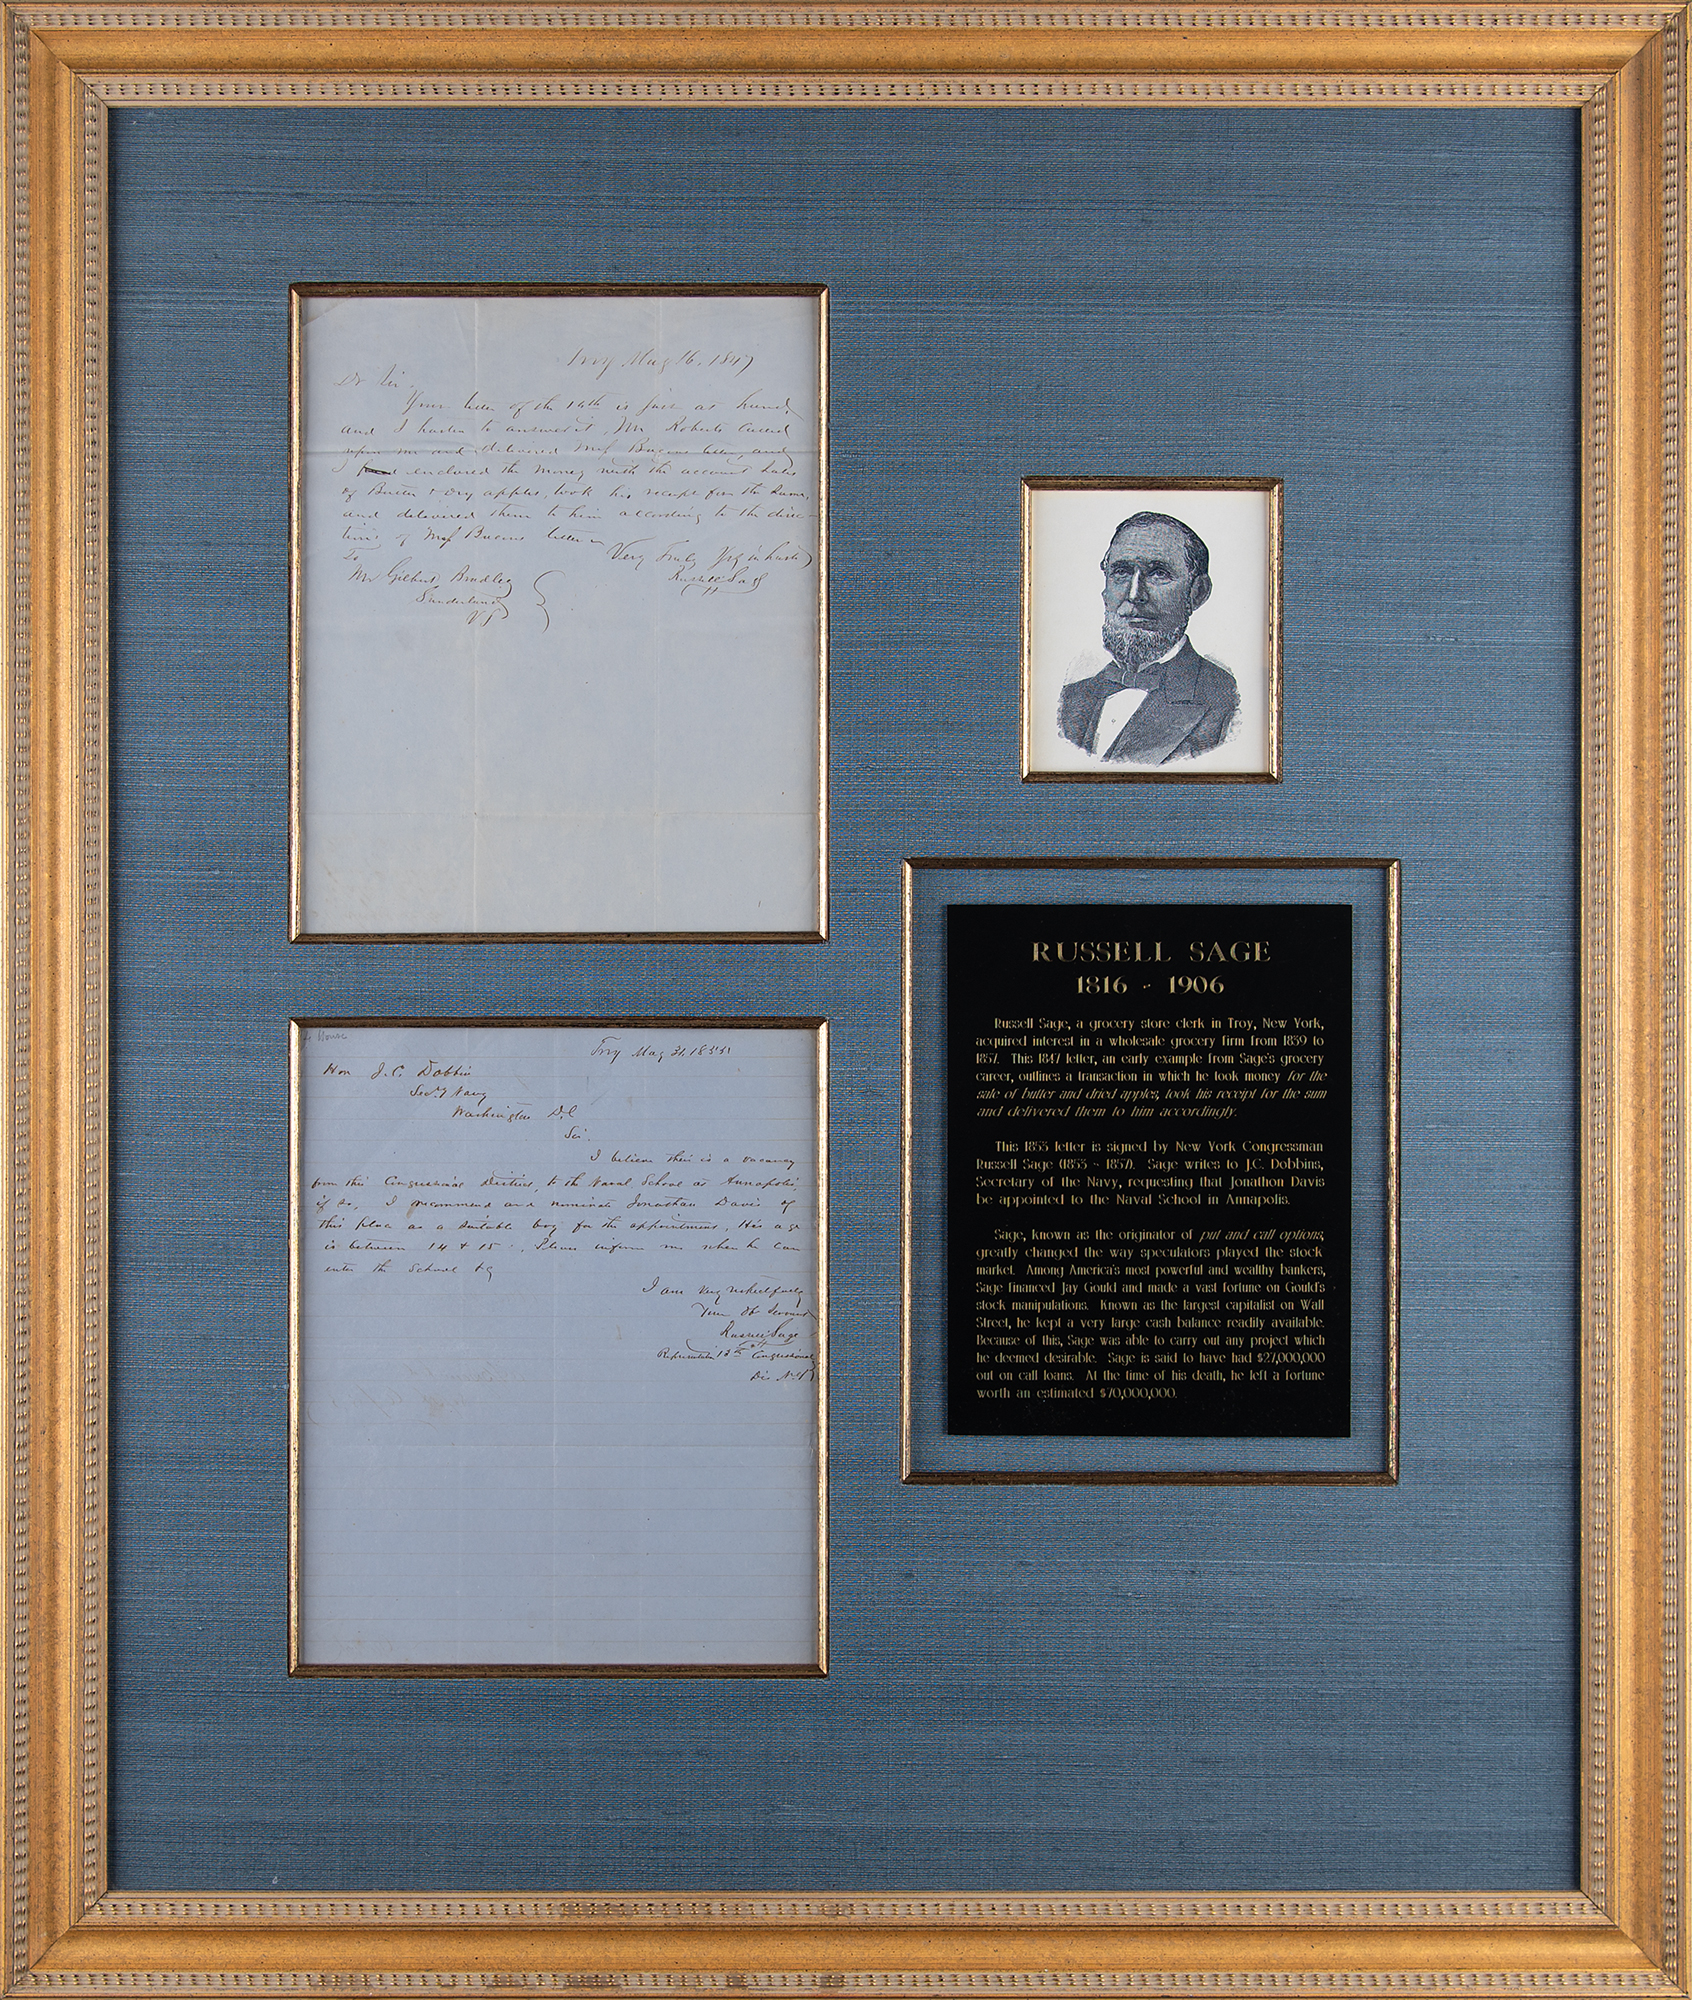 Troy Aug 16, 1847
Dr Sir,
Your letter of the 14th is just at hand,
and I hasten to answer it, Mr Roberts called
upon me and delivered Mrs letter, and
enclosed the money with the account sales
of Butter & dry apples, took his receipt for the sum,
and delivered them to him according to the direc-
tions of Mrs letter
Very Truly Yrs in haste
Russell Sage
To
Mr Gilbert Bradley
Sunderland
Vt
House
Troy May 31. 1855
Hon J. C. Dobbin
Secy Navy
Washington D.C
Sir.
I believe their is a vacancy
from this Congressional District, to the Naval School at Annapolis
if so, I recommend and nominate Jonathan Davis of
this place as a suitable boy for the appointment, His age
is between 14 & 15. Please inform me when he can
enter the School &c
I am very respectfully
Your Ob Servant
Russell Sage
Representative 13th Congressional
Dis N.Y
RUSSELL SAGE
1816 - 1906
Russell Sage, a grocery store clerk in Troy, New York,
acquired interest in a wholesale grocery firm from 1839 to
1857. This 1847 letter, an early example from Sage's grocery
career, outlines a transaction in which he took money for the
sale of butter and dried apples, took his receipt for the sum
and delivered them to him accordingly.
This 1855 letter is signed by New York Congressman
Russell Sage (1853 - 1857). Sage writes to J.C. Dobbins,
Secretary of the Navy, requesting that Jonathon Davis
be appointed to the Naval School in Annapolis.
Sage, known as the originator of put and call options,
greatly changed the way speculators played the stock
market. Among America's most powerful and wealthy bankers,
Sage financed Jay Gould and made a vast fortune on Gould's
stock manipulations. Known as the largest capitalist on Wall
Street, he kept a very large cash balance readily available.
Because of this, Sage was able to carry out any project which
he deemed desirable. Sage is said to have had $27,000,000
out on call loans. At the time of his death, he left a fortune
worth an estimated $70,000,000.